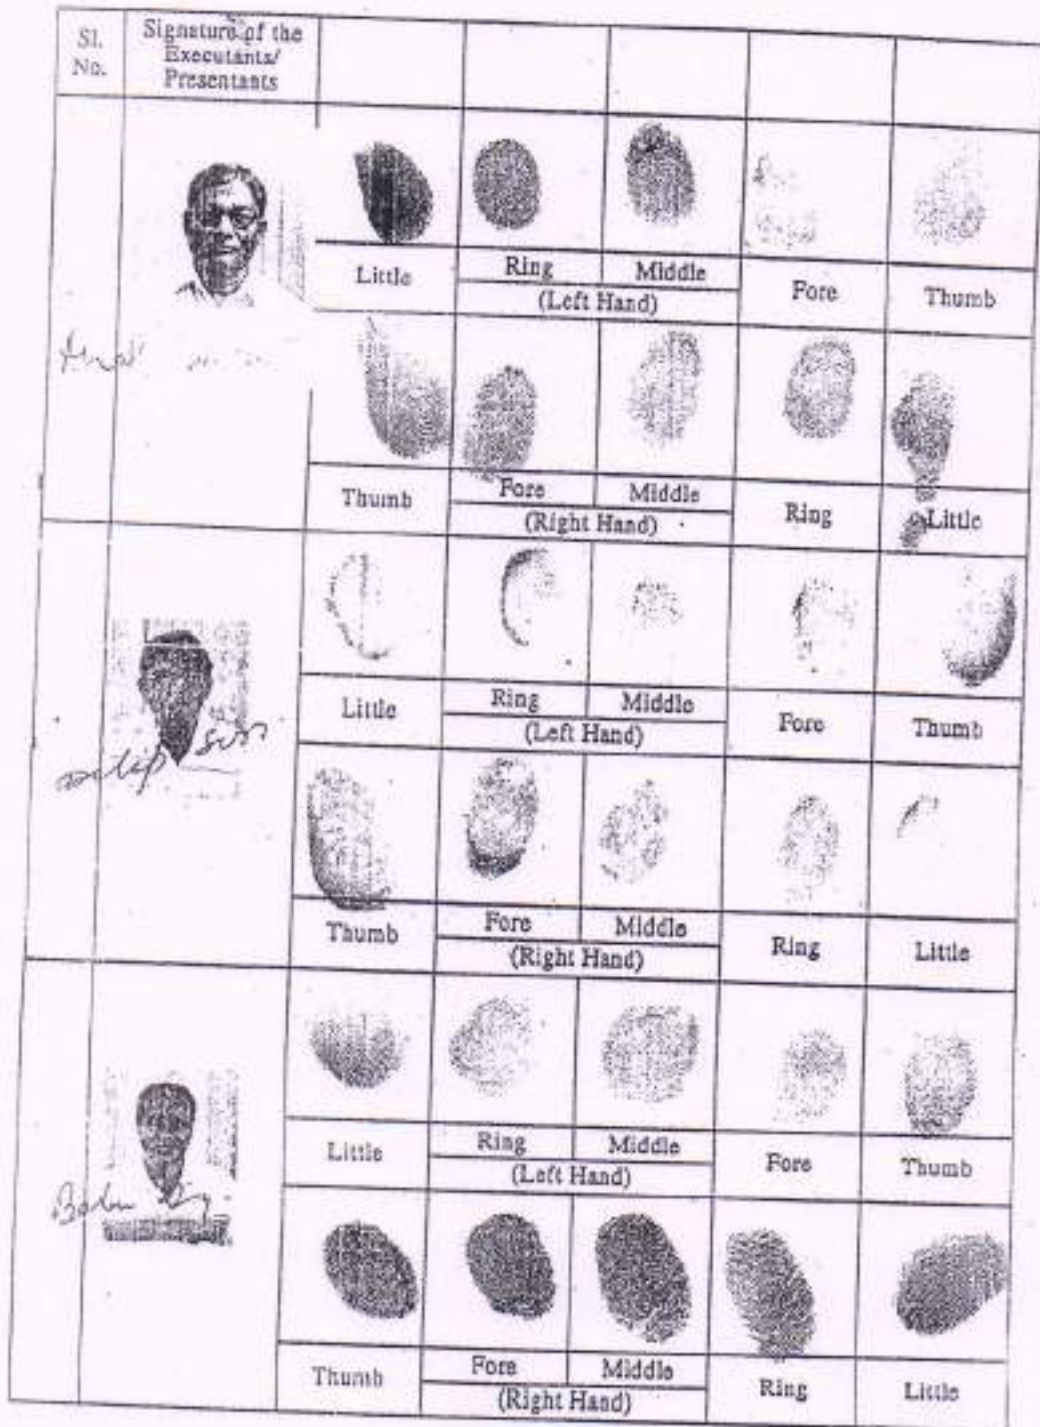 Sl. No.
Signature of the Executants/ Presentants
Little Ring Middle Fore Thumb
(Left Hand)
Thumb Fore Middle Ring Little
(Right Hand)
Little Ring Middle Fore Thumb
(Left Hand)
Thumb Fore Middle Ring Little
(Right Hand)
Little Ring Middle Fore Thumb
(Left Hand)
Babu
Thumb Fore Middle Ring Little
(Right Hand)